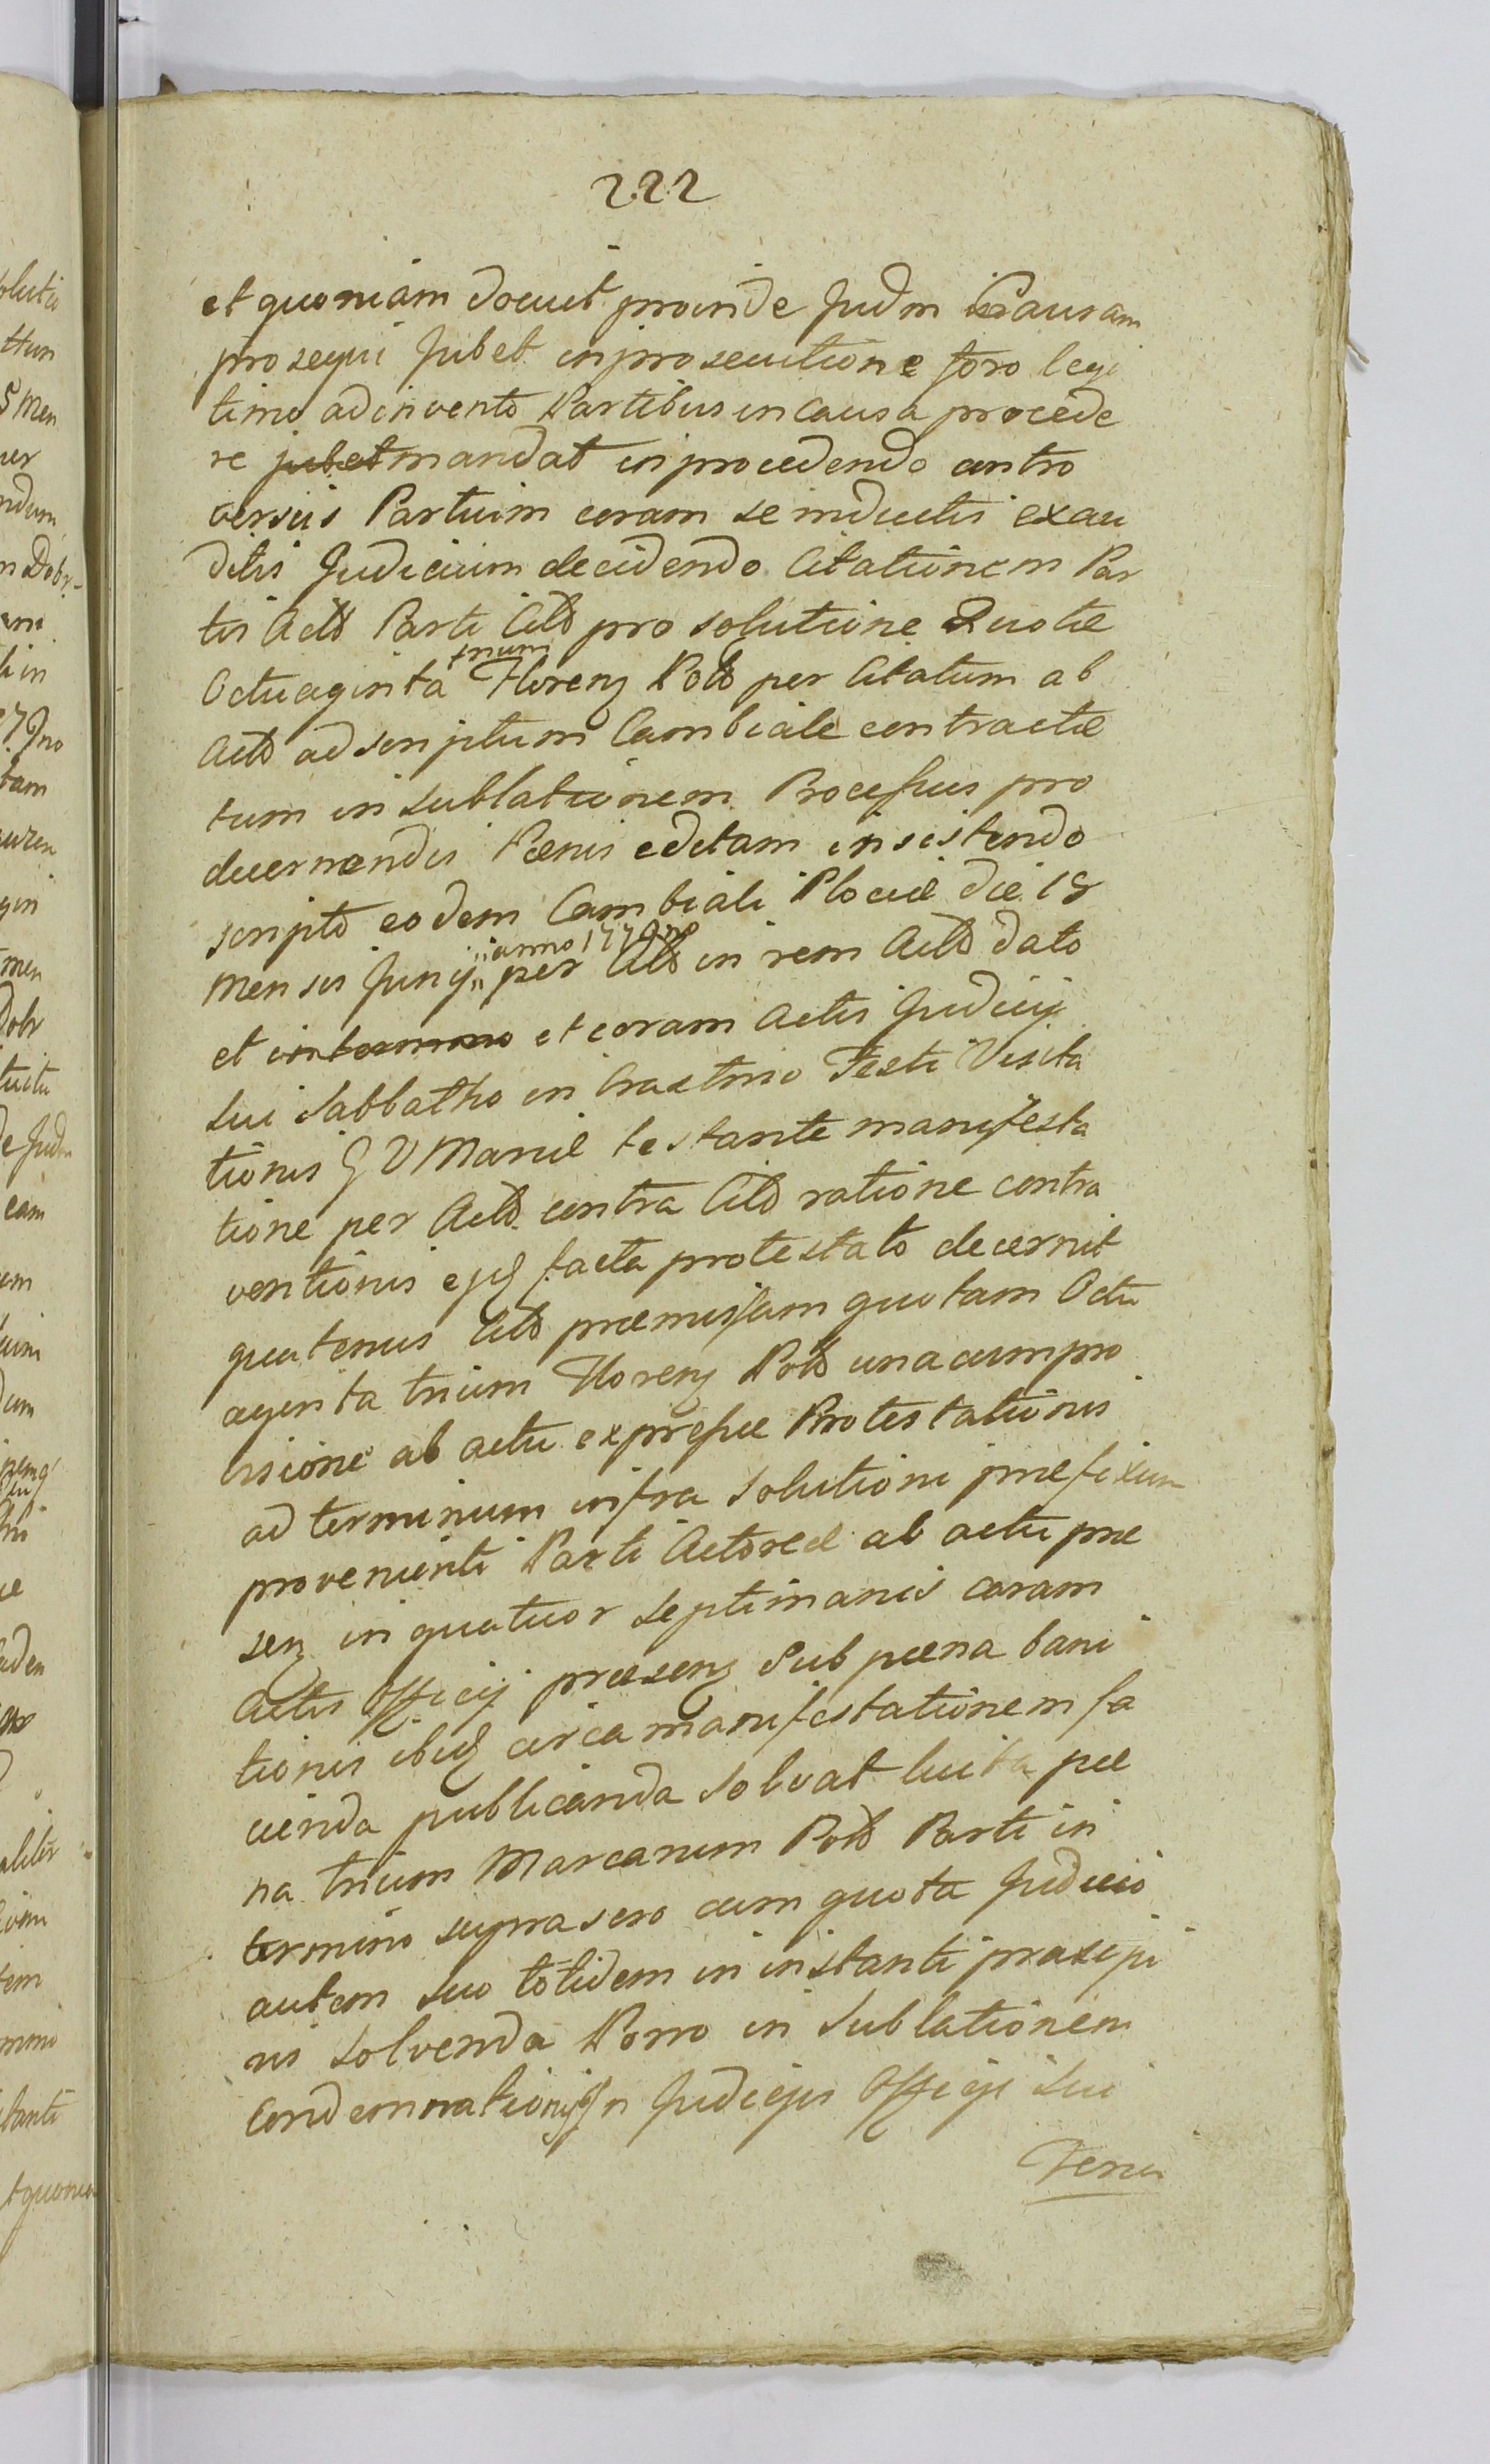 222
et quoniam docuit proinde Judm Causam
prosequi Jubet in prosecutione foro legi
timo adinvento Partibus in Causa procede
re jubet mandat in procedendo contro
versiis Partium coram se inductis exau
ditis Judicium decidendo Citationem Par
tis Actd Parti Citd pro solutione Quotæ
trium
Octuaginta Florenz Pold per Citatum ab
Actd ad scriptum Cambiale contractæ
tum in sublationem Processus pro
decernendis Pœnis editam insistendo
scripto eodem Cambiali Plociæ die 18
anno 1779no
Mensis Junij per Citd in rem Actd dato
et et coram Actis Judicij
sui Sabbatho in Crastino Festi Visita
tionis B V Mariæ testante manifesta
tione per Actd contra Citd ratione contra
ventionis ejq facta protestato decernit
quatenus Citd præmissam quotam Octu
aginta trium Florenz Pold una cum pro
visione ab actu expressæ Protestationis
ad terminum infra solutioni præfixum
provenienti Parti Actoreæ ab actu præ
senz in quatuor septimanis coram
Actis Officij præsenz sub pœna bani
tionis ibiq circa manifestationem fa
cienda publicanda solvat luita pœ
na trium Marcarum Pold Parti in
termino suprasero cum quota Judicio
autem suo totidem in instanti præsipi
us solvenda Porro in sublationem
Condemnationis Judicijs Officij sui